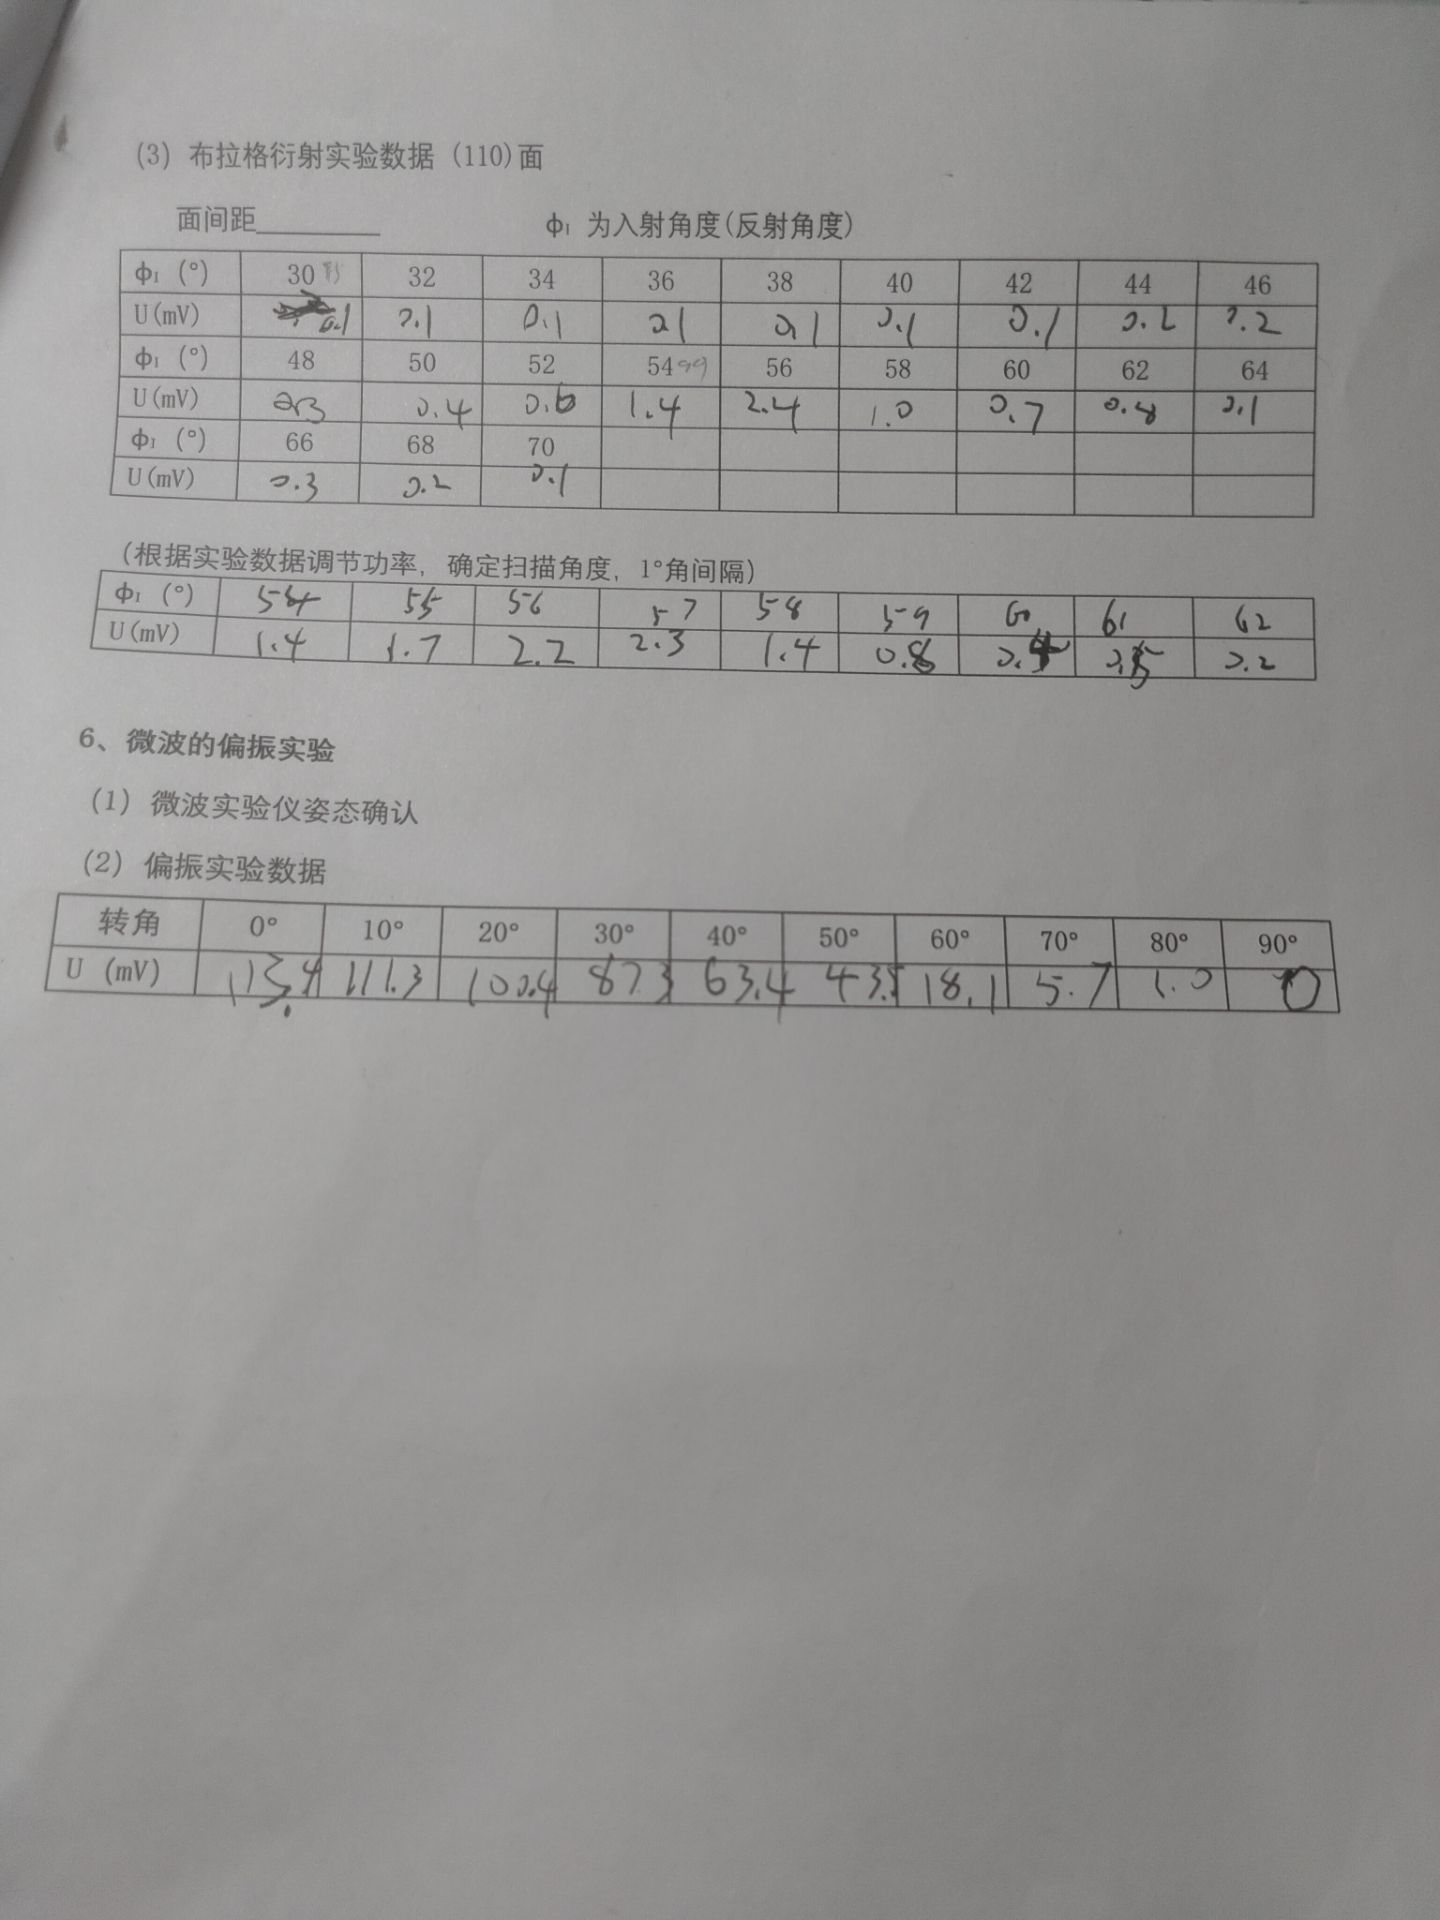 (3) 布拉格衍射实验数据 (110)面
面间距________ φI 为入射角度(反射角度)
φI (°) 30 32 34 36 38 40 42 44 46
U(mV) 0.1 0.1 0.1 0.1 0.1 0.1 0.1 0.2 0.2
φI (°) 48 50 52 54 56 58 60 62 64
U(mV) 0.3 0.4 0.6 1.4 2.4 1.0 0.7 0.8 0.1
φI (°) 66 68 70
U(mV) 0.3 0.2 0.1
(根据实验数据调节功率, 确定扫描角度, 1°角间隔)
φI (°) 54 55 56 57 58 59 60 61 62
U(mV) 1.4 1.7 2.2 2.3 1.4 0.8 0.2
6、微波的偏振实验
(1) 微波实验仪姿态确认
(2) 偏振实验数据
转角 0° 10° 20° 30° 40° 50° 60° 70° 80° 90°
U (mV) 113.4 111.3 100.4 87.3 63.4 18.1 5.7 1.0 0